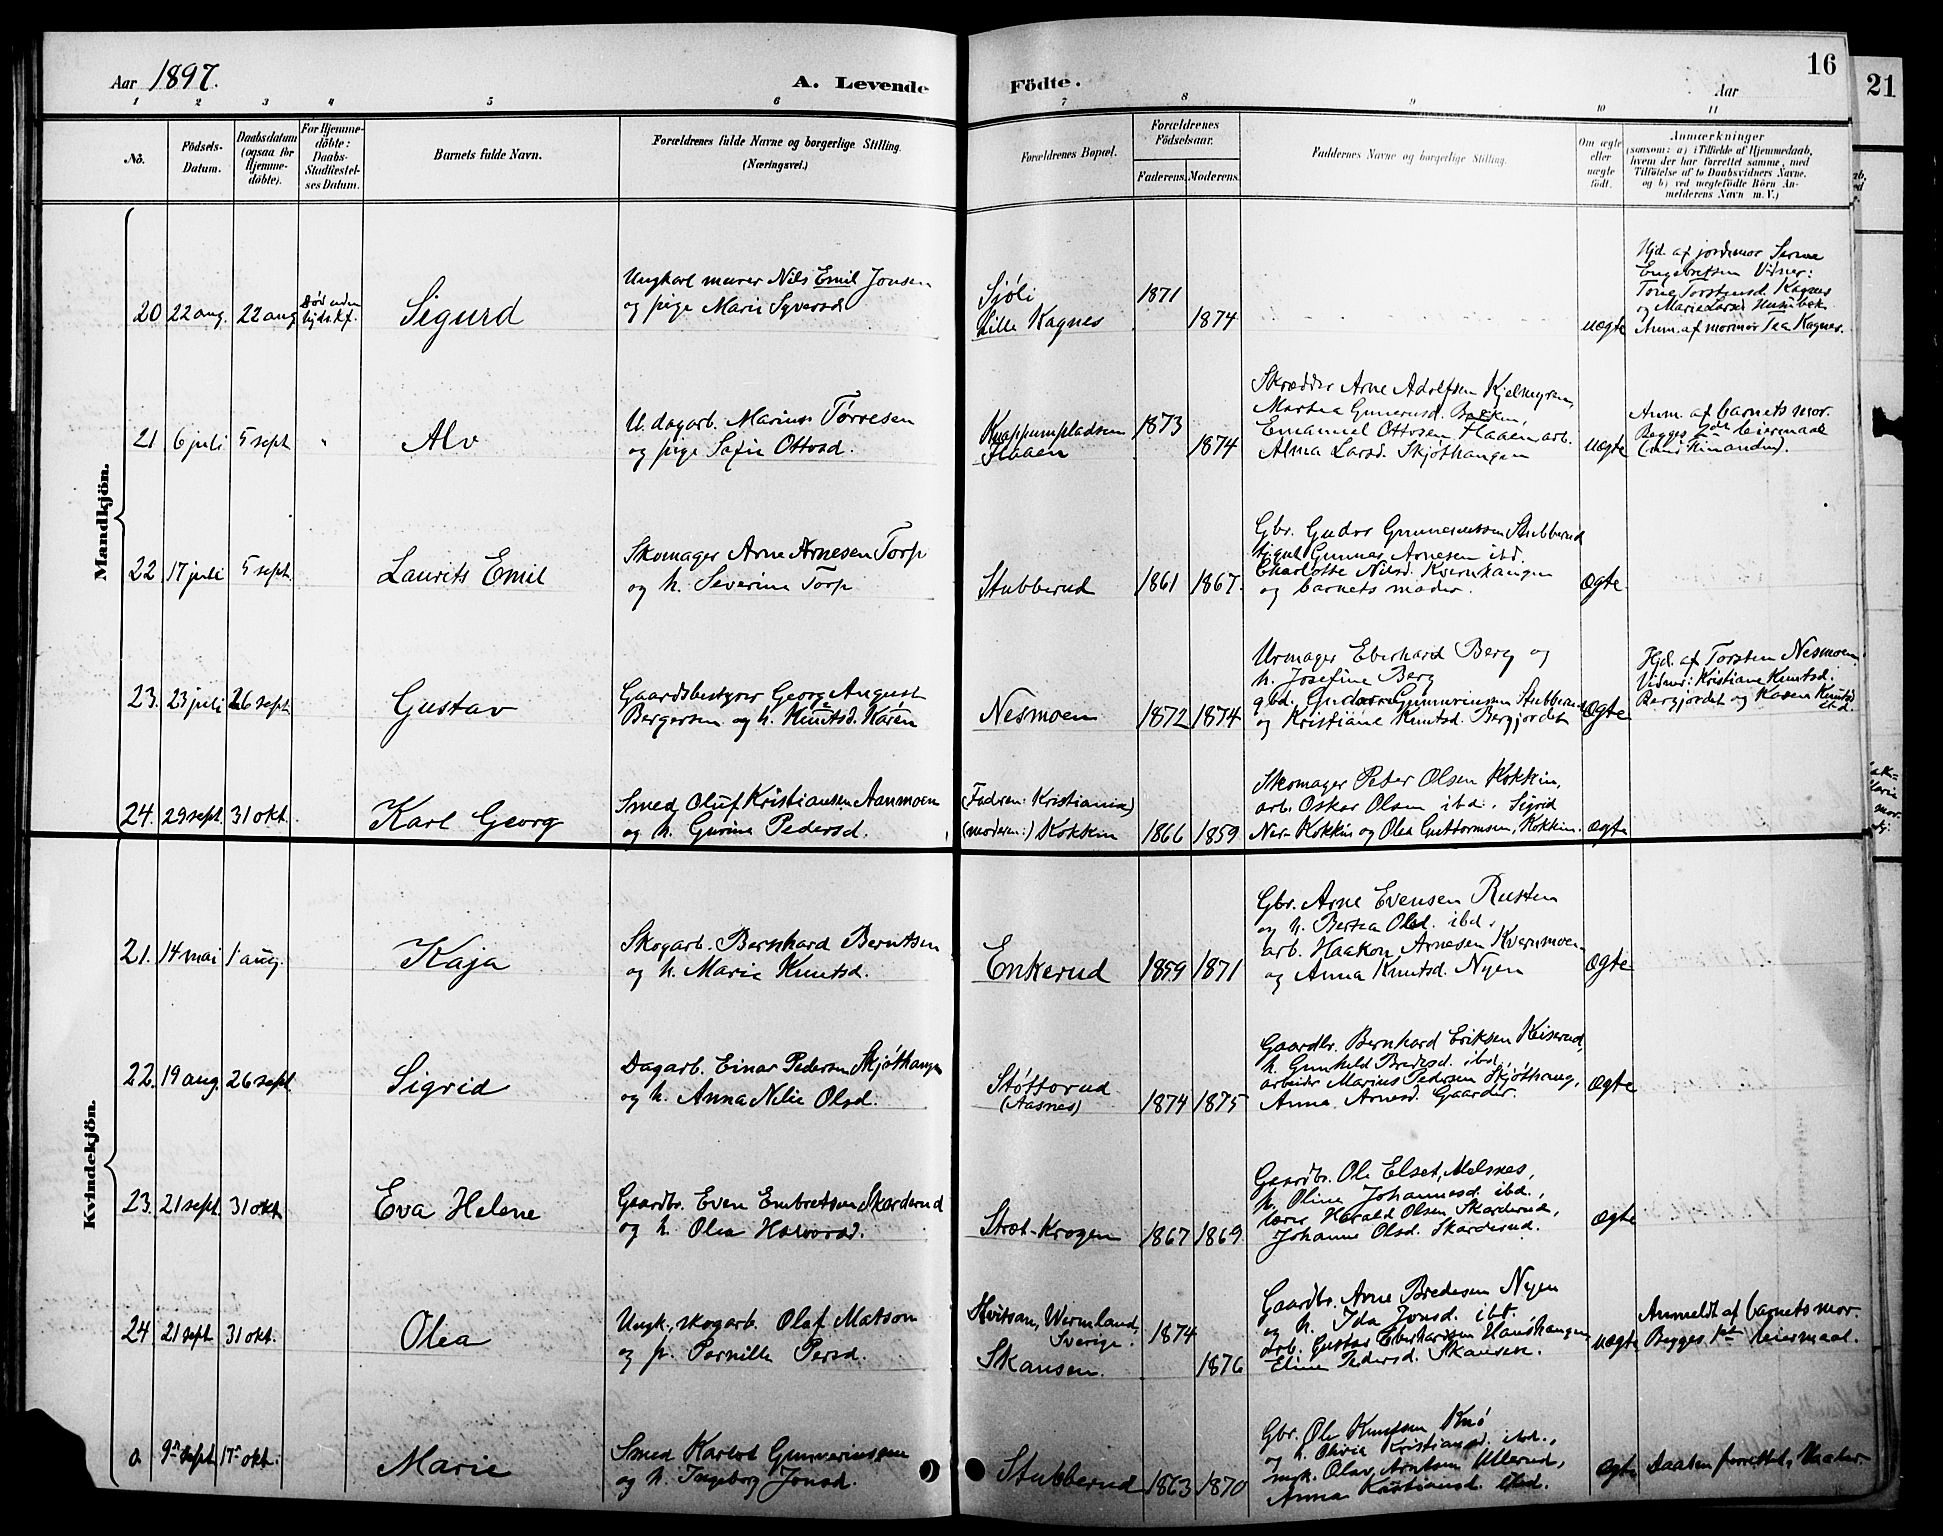 Aar 1897. A. Levende Födte. Aar 16
21
1 2 3 4 5 6 7 8 9 10 11
Nô.
Födsels-
Datum.
Daabsdatum
(ogsaa for
Hjemme-
döbte).
For Hjemme-
döbte:
Daabs-
Stadfæstel-
ses Datum.
Barnets fulde Navn.
Forældrenes fulde Navne og borgerlige Stilling.
(Næringsvei.)
Forældrenes Bopæl.
Forældrenes
Födselsaar.
Faderens. Moderens.
Faddernes Navne og borgerlige Stilling.
Om ægte
eller
uægte
födt.
Anmærkninger
(saasom: a) i Tilfælde af Hjemmedaab,
hvem der har forrettet samme, med
Tilföielse af to Daabsvidners Navne.
og b) ved uegtefödte Börn An-
melderens Navn m. V.)
Mandkjön.
20 22 aug. 22 aug Död uden Sigurd
Ungkarl murer Nils Emil Jonsen
og pige Marie Syversd
Sjöli
Lille Kagnes
1871
1874
uægte
Hjd. af jordemor
Engebretsen Vidner:
Tone Torstensd Kagnes
og Marie Larsd
Anm. af mormor Kagnes.
21 6 juli 5 sept " Alv
U. dagarb. Marius Törresen
og pige Sofie Ottosd.
Knappumpladsen
Haaen
1873
1874
Skrædder Arne Adolfsen
Martea Gunerusd. Bakken,
Emanuel Ottosen Haaen arb.
Alma Larsd. Skjöthaugen
uægte
Anm. af barnets mor.
Begges 1ste leiermaal
(med hinanden).
22 17 juli 5 sept Laurits Emil
Skomager Arne Arnesen Torp
og h. Severine Torp
Stubberud
1861 1867.
Gbr. Gudor Gunnerussen Stubberud
Gunnar Arnesen ibd.
Charlotte Nilsd. Kvernhaugen
og barnets moder.
Ægte
23. 23 juli 26 sept Gustav
Gaardsbestyrer Georg August
Bergersen og h. Knutsd. Karen
Nesmoen
1872 1874
Urmager Eberhard Berg og
h. Josefine Berg
gbd. Stubberud
og Kristiane Knutsd. Bergjordet
Ægte
Hjd. af Torsten Nesmoen.
Vidner: Kristiane Knutsd.
Bergjordet og Karen Knutsd
ibd.
24. 29 sept. 31 okt. Karl Georg
Smed Oluf Kristiansen Aanmoen
og h. Gurine Pedersd.
(Faderen: Kristiania)
(moderen:) Kokkin
1866 1859
Skomager Peter Olsen Kokkin,
arb. Oskar Olsen ibd. Sigrid
Kokkin og Olea Guttormsen, Kokkin.
Ægte
Kvindekjön.
21. 14 mai 1 aug. Kaja
Skogarb. Bernhard Berntsen
og h. Marie Knutsd.
Enkerud
1859 1871
Gbr. Arne Evensen Rusten
og h. Bertea Olsd. ibd.
arb. Haakon Arnesen Kvernmoen
og Anna Knutsd. Nyen
Ægte
22. 19 aug. 26 sept Sigrid
Dagarb. Einar Pedersen Skjöthaugen
og h. Anna Nilie Olsd.
Stöttorud
(Aasnes)
1874 1875
Gaardbr. Bernhard Eriksen Keiserud,
h. Gunhild Bredesd. ibd.
arbeider Marius Pedersen Skjöthaug,
Anna Arnesd. Gaarder.
Ægte
23. 21 sept 31 okt Eva Helene
Gaardbr. Even Embretsen Skarderud
og h. Olea Halvorsd.
Stræt-Krogen
1867 1869
Gaardbr. Ole Elset, Melsnes,
h. Oline Johannesd. ibd.,
lærer Harald Olsen Skarderud,
Johanne Olsd. Skarderud.
Ægte
24 21 sept 31 okt. Olea
Ungk. skogarb. Olaf Matson
og p. Pernille Persd.
Hvitsan, Wermland,
Sverige.
Skansen.
1874
1876
Gaardbr. Arne Bredesen Nyen
og h. Ida Jonsd. ibd.
arb. Gustav Eberhardsen
Eline Pedersd. Skansen.
uægte
Anmeldt af barnets mor.
Begges 1ste leiermaal.
0. 9 sept 17 okt. Marie
Smed Gunneriussen
og h. Ingeborg Jonsd.
Stubberud
1863 1870
Gbr. Ole Knutsen Knö
og h. Olivia Kristiansd. ibd.,
ungk. Olav Arntsen Ullerud,
Anna Kristiansd. ibd.
Ægte
Daaben forrettet i Vaaler.